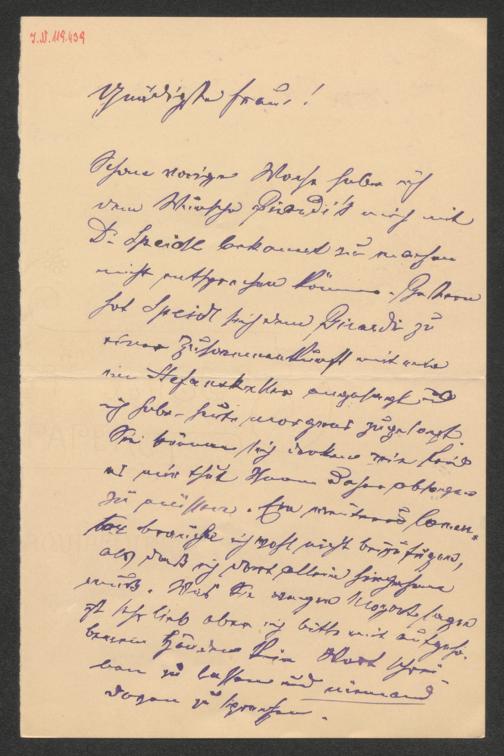 J.N. 119.439
Gnädigste Frau!
Schon vorige Woche habe ich
dem Wunsche Girardi's mich mit
Dr Speidl bekannt zu machen
nicht entsprechen können. Gestern
hat Speidl sich dem Girardi zu
einer Zusammenkunft mit uns
im Stefanskeller angesagt und
ich habe heute morgens zugesagt.
Sie können sich denken wie leid
es mir thut Ihnen daher absagen
zu müssen. Ein weiteres
brauche ich wohl nicht beizufügen,
als daß ich dort allein hingehen
muß. Was Sie wegen sagen
ist sehr lieb aber ich bitte mit aufgeho-
benen Händen kein Wort schrei-
ben zu lassen und niemand
davon zu sprechen.